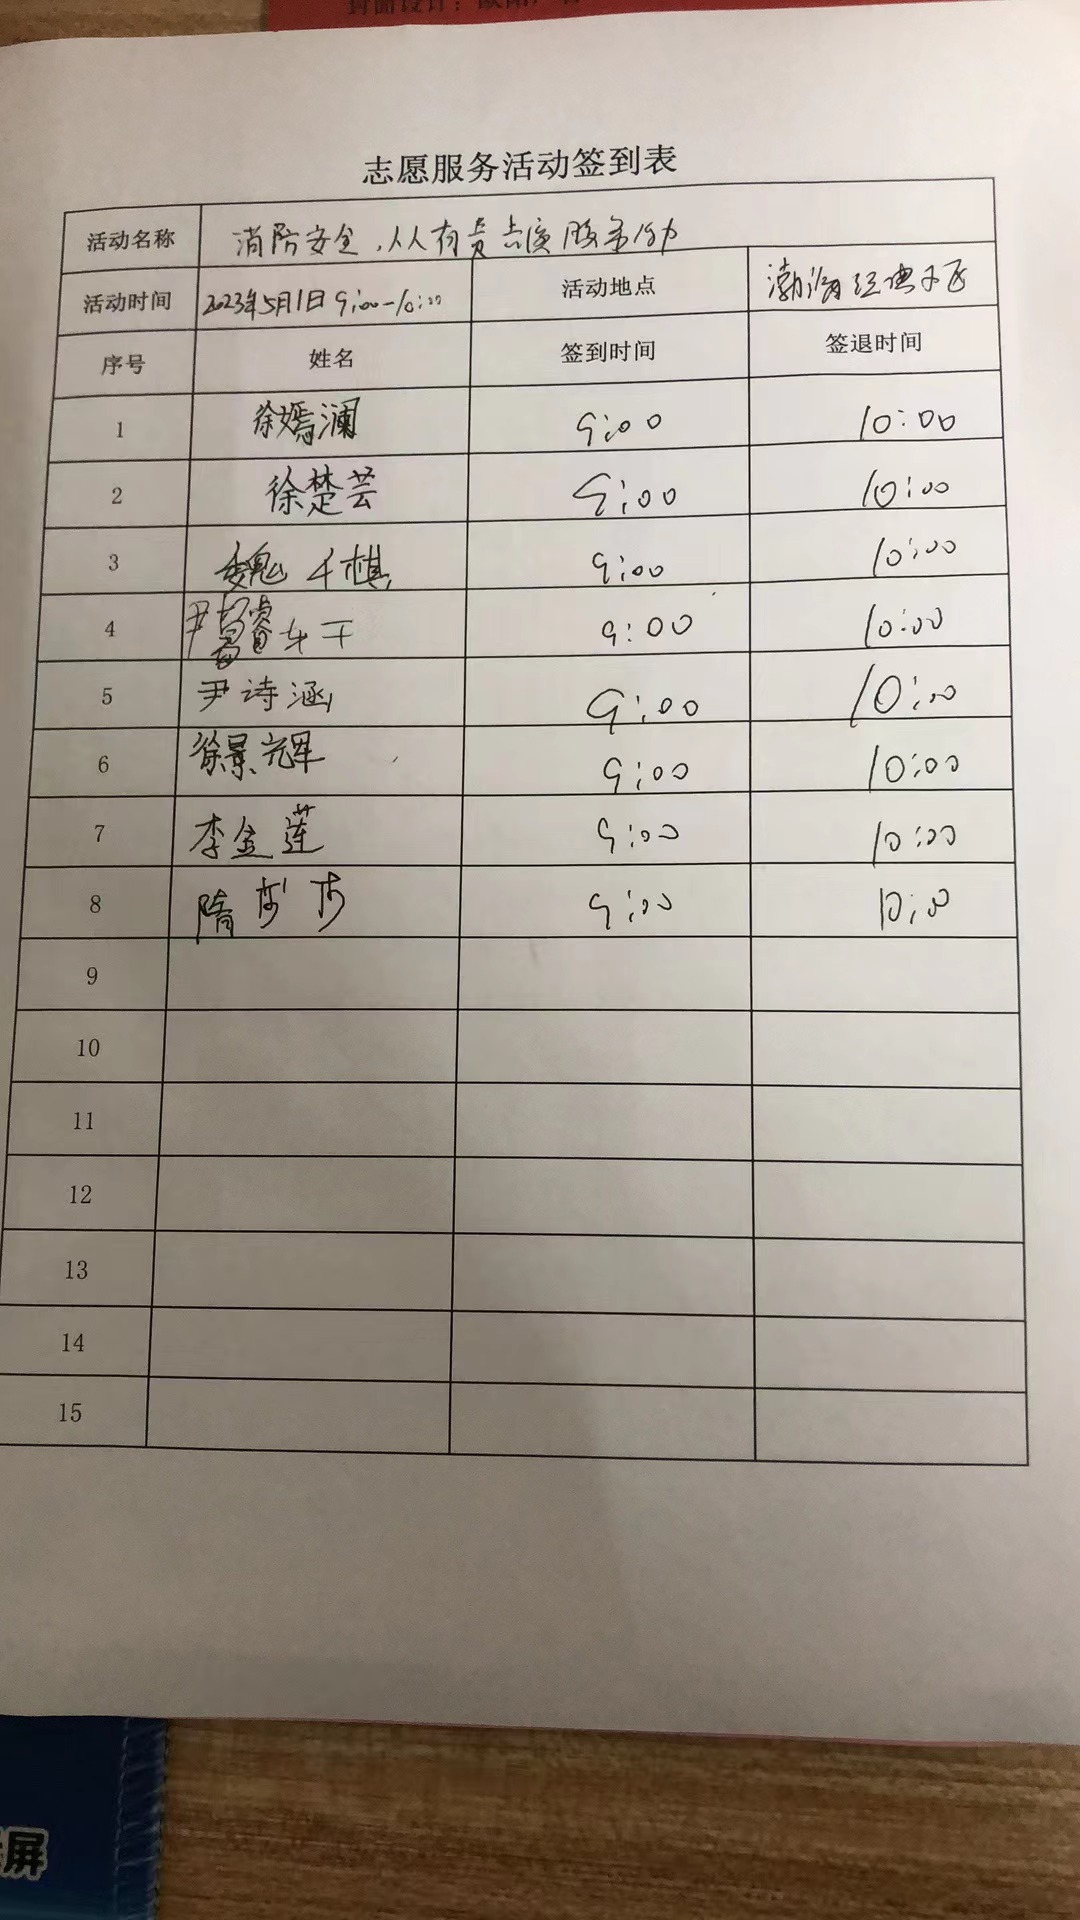 封面设计：欧阳
志愿服务活动签到表
活动名称 消防安全，人人有责志愿服务活动
活动时间 2023年5月1日 9:00-10:00 活动地点 渤海经典小区
序号 姓名 签到时间 签退时间
1 徐嫣澜 9:00 10:00
2 徐楚芸 9:00 10:00
3 魏千棋 9:00 10:00
4 尹睿 9:00 10:00
5 尹诗涵 9:00 10:00
6 徐景辉 9:00 10:00
7 李金莲 9:00 10:00
8 隋莎莎 9:00 10:00
9
10
11
12
13
14
15
屏